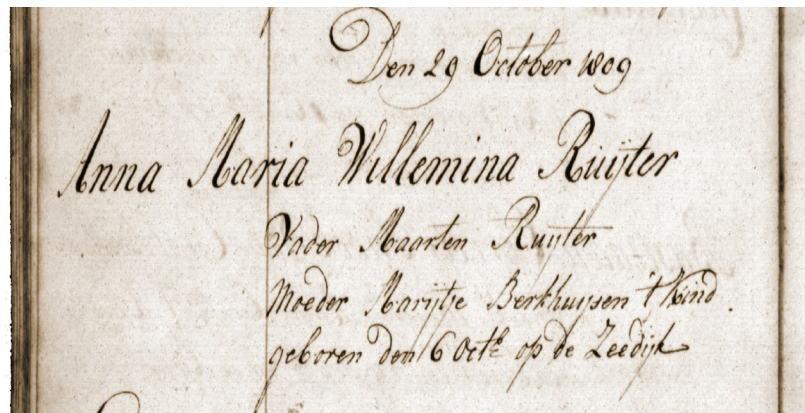 Den 29 October 1809
Anna Maria Willemina Ruijter
Vader Maarten Ruijter
Moeder Marijtje Berkhuijsen 't Kind
geboren den 6 Octb op de Zeedijk